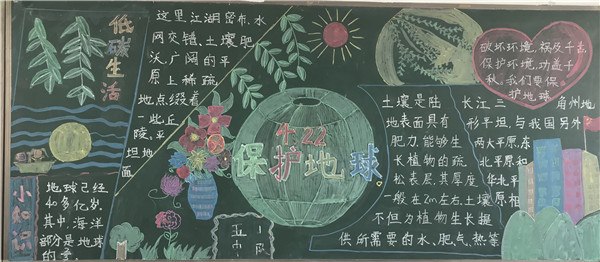 低碳生活
这里江湖密布,水
网交错,土壤肥
沃,广阔的平
原上稀疏
地点缀着
一些丘
陵,平
坦地
面
小知识
地球已经
40多亿岁,
其中,海洋
部分是地球
的
4.22
保护地球
五
中
队
破坏环境,祸及千古
保护环境,功盖千
秋。我们要保
护地球
土壤是陆
地表面具有
肥力,能够生
长植物的疏
松表层,其厚度
一般在2m左右,土壤
不但为植物生长提
供所需要的水、肥气、热等
长江三
角州地
形平坦与我国另外
两大平原,东
北平原和
华北平
原相